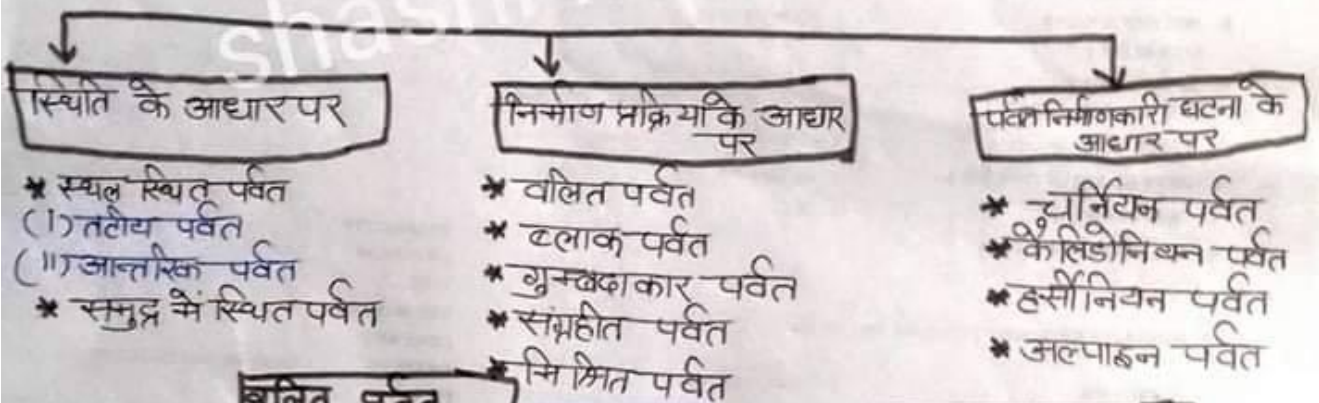 स्थिति के आधार पर
* स्थल स्थित पर्वत
(I) तटीय पर्वत
(II) आन्तरिक पर्वत
* समुद्र में स्थित पर्वत
निर्माण प्रक्रिया के आधार
पर
* वलित पर्वत
* ब्लाक पर्वत
* गुम्बदाकार पर्वत
* संग्रहीत पर्वत
* मिश्रित पर्वत
पर्वत निर्माणकारी घटना के
आधार पर
* चर्नियन पर्वत
* कैलिडोनियन पर्वत
* हर्सीनियन पर्वत
* अल्पाइन पर्वत
वलित पर्वत